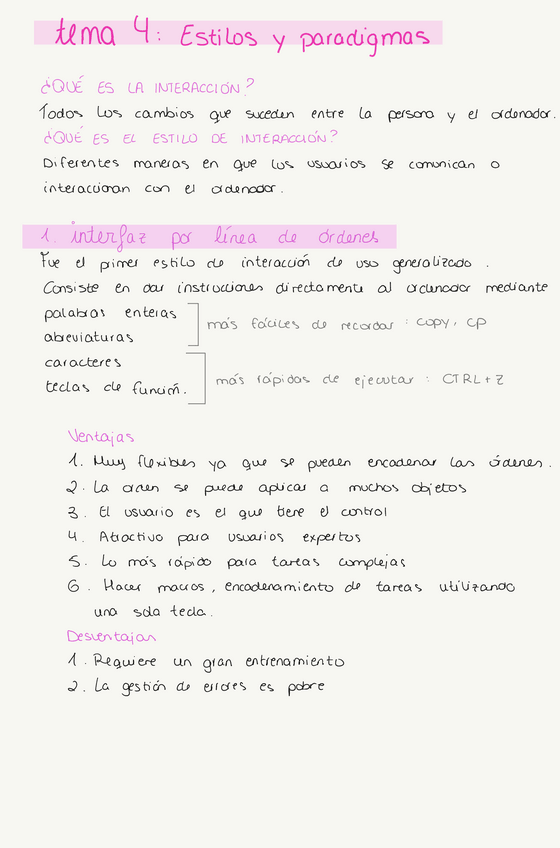 tema 4: Estilos y paradigmas
¿QUÉ ES LA INTERACCIÓN?
Todos los cambios que suceden entre la persona y el ordenador.
¿QUÉ ES EL ESTILO DE INTERACCIÓN?
Diferentes maneras en que los usuarios se comunican o
interaccionan con el ordenador.
1. interfaz por línea de órdenes
Fue el primer estilo de interacción de uso generalizado.
Consiste en dar instrucciones directamente al ordenador mediante
palabras enteras
abreviaturas
más fáciles de recordar: COPY, CP
caracteres
teclas de función.
más rápidas de ejecutar: CTRL+Z
Ventajas
1. Muy flexibles ya que se pueden encadenar las órdenes.
2. La orden se puede aplicar a muchos objetos
3. El usuario es el que tiene el control
4. Atractivo para usuarios expertos
5. Lo más rápido para tareas complejas
6. Hacer macros, encadenamiento de tareas utilizando
una sola tecla.
Desventajas
1. Requiere un gran entrenamiento
2. La gestión de errores es pobre